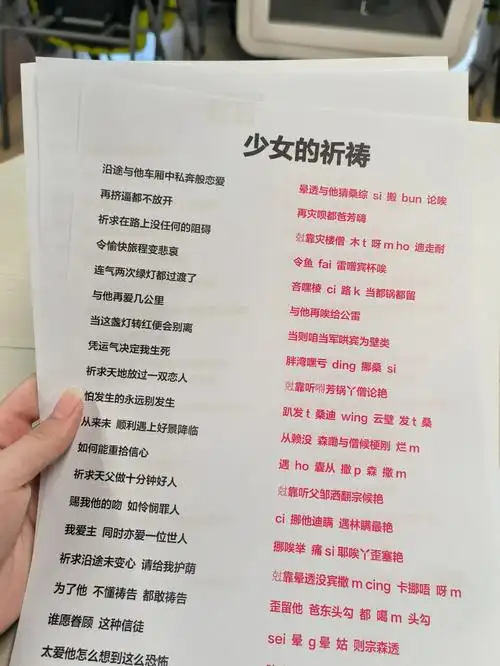 少女的祈祷
沿途与他车厢中私奔般恋爱
再挤逼都不放开
祈求在路上没任何的阻碍
令愉快旅程变悲哀
连气两次绿灯都过渡了
与他再爱几公里
当这盏灯转红便会别离
凭运气决定我生死
祈求天地放过一双恋人
怕发生的永远别发生
从来未 顺利遇上好景降临
如何能重拾信心
祈求天父做十分钟好人
赐我他的吻 如怜悯罪人
我爱主 同时亦爱一位世人
祈求沿途未变心 请给我护荫
为了他 不懂祷告 都敢祷告
谁愿眷顾 这种信徒
太爱他怎么想到这么恐怖
晕透与他猜桑综 si 搬 bun 论唉
再灾呗都爸芳嗨
尅靠灾楼僧 木 t 呀 m ho 迪走耐
令鱼 fai 雷噌宾杯唉
吝嘿棱 ci 路 k 当都锅都留
与他再唉给公雷
当则咱当军哄宾为壁类
胖湾嘿亏 ding 挪桑 si
尅靠听嘚芳锅丫僧论艳
趴发 t 桑迪 wing 云壁 发 t 桑
从赖没 森嘞与僧候梗刚 烂 m
遇 ho 囊从 撒 p 森 撒 m
尅靠听父邹洒翻宗候艳
ci 挪他迪瞒 遇林瞒最艳
挪唉举 痛 si 耶唉丫歪塞艳
尅靠晕透没宾撒 m cing 卡挪唔 呀 m
歪留他 爸东头勾 都 噶 m 头勾
sei 晕 g 晕 姑 则宗森透